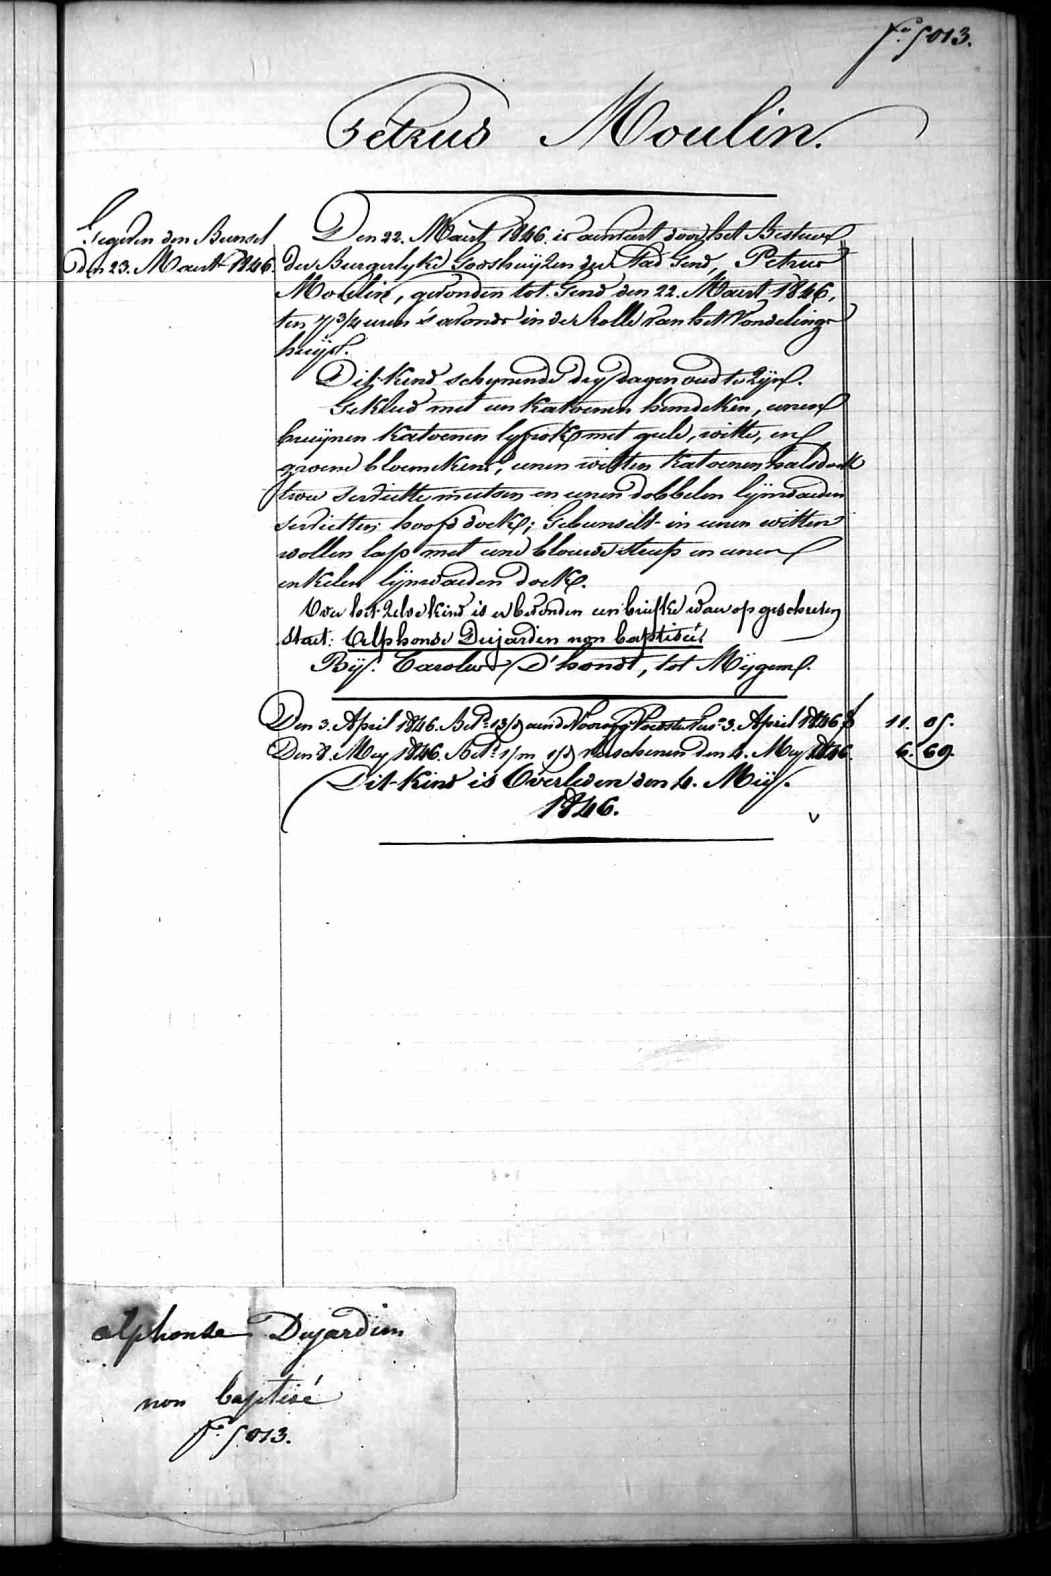 Fo. 5013.
Petrus Moulin.
Gegeven den Bunsel
den 23. Maart 1846.
Den 22. Maert 1846 is aenveert door het Bestuer
der Burgerlyke Godshuijzen der Stad Gend, Petrus
Moulin, gevonden tot Gend den 22. Maert 1846,
ten 7 3/4 uren s'avonds in de Rolle van het Vondelinge
huijs.
Dit kind schynende dry dagen oud te zijn.
Gekleed met een katoenen hemdeken, eenen
bruijnen katoenen lyfrok met gele, witte, en
groene bloemekens, eenen witten katoenen halsdoek
twee serviette mutsen en eenen dobbelen lijnwaeden
servietten hoofddoek; Gebunselt in eenen witten
wollen lap met eene blauwe streep en eenen
enkelen lijnwaeden doek.
Over het zelve kind is er bevonden een briefke waer op geschreven
staet: Alphonse Dujardin non baptisé.
Bij Carolus D'hondt, tot Mijgem.
Den 3. April 1846. Betd. 13/d aen de Voorzorg 3. April 1846 f 11. 05.
Den 8. Mey 1846. Betd. 1/m 1/d verschenen den 4. Mey 1846. 6. 69.
Dit kind is Overleden den 4. Meij.
1846.
v
alphonse Dujardin
non baptisé
Fo. 5013.